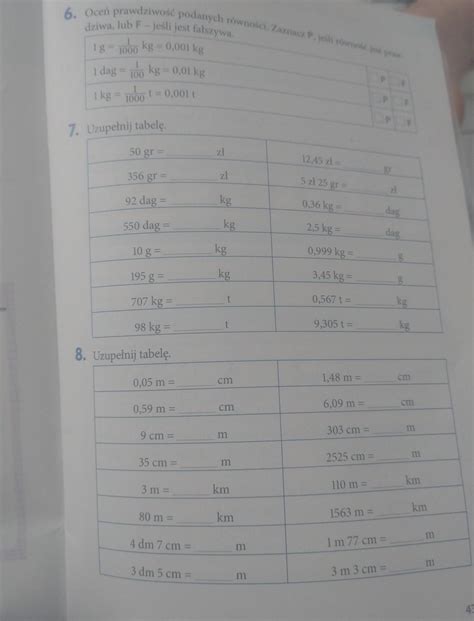 6. Oceń prawdziwość podanych równości. Zaznacz P, jeśli równość jest praw-
dziwa, lub F – jeśli jest fałszywa.
1 g = 1/1000 kg = 0,001 kg P F
1 dag = 1/100 kg = 0,01 kg P F
1 kg = 1/1000 t = 0,001 t P F
7. Uzupełnij tabelę.
50 gr = ______ zł 12,45 zł = ______ gr
356 gr = ______ zł 5 zł 25 gr = ______ zł
92 dag = ______ kg 0,36 kg = ______ dag
550 dag = ______ kg 2,5 kg = ______ dag
10 g = ______ kg 0,999 kg = ______ g
195 g = ______ kg 3,45 kg = ______ g
707 kg = ______ t 0,567 t = ______ kg
98 kg = ______ t 9,305 t = ______ kg
8. Uzupełnij tabelę.
0,05 m = ______ cm 1,48 m = ______ cm
0,59 m = ______ cm 6,09 m = ______ cm
9 cm = ______ m 303 cm = ______ m
35 cm = ______ m 2525 cm = ______ m
3 m = ______ km 110 m = ______ km
80 m = ______ km 1563 m = ______ km
4 dm 7 cm = ______ m 1 m 77 cm = ______ m
3 dm 5 cm = ______ m 3 m 3 cm = ______ m